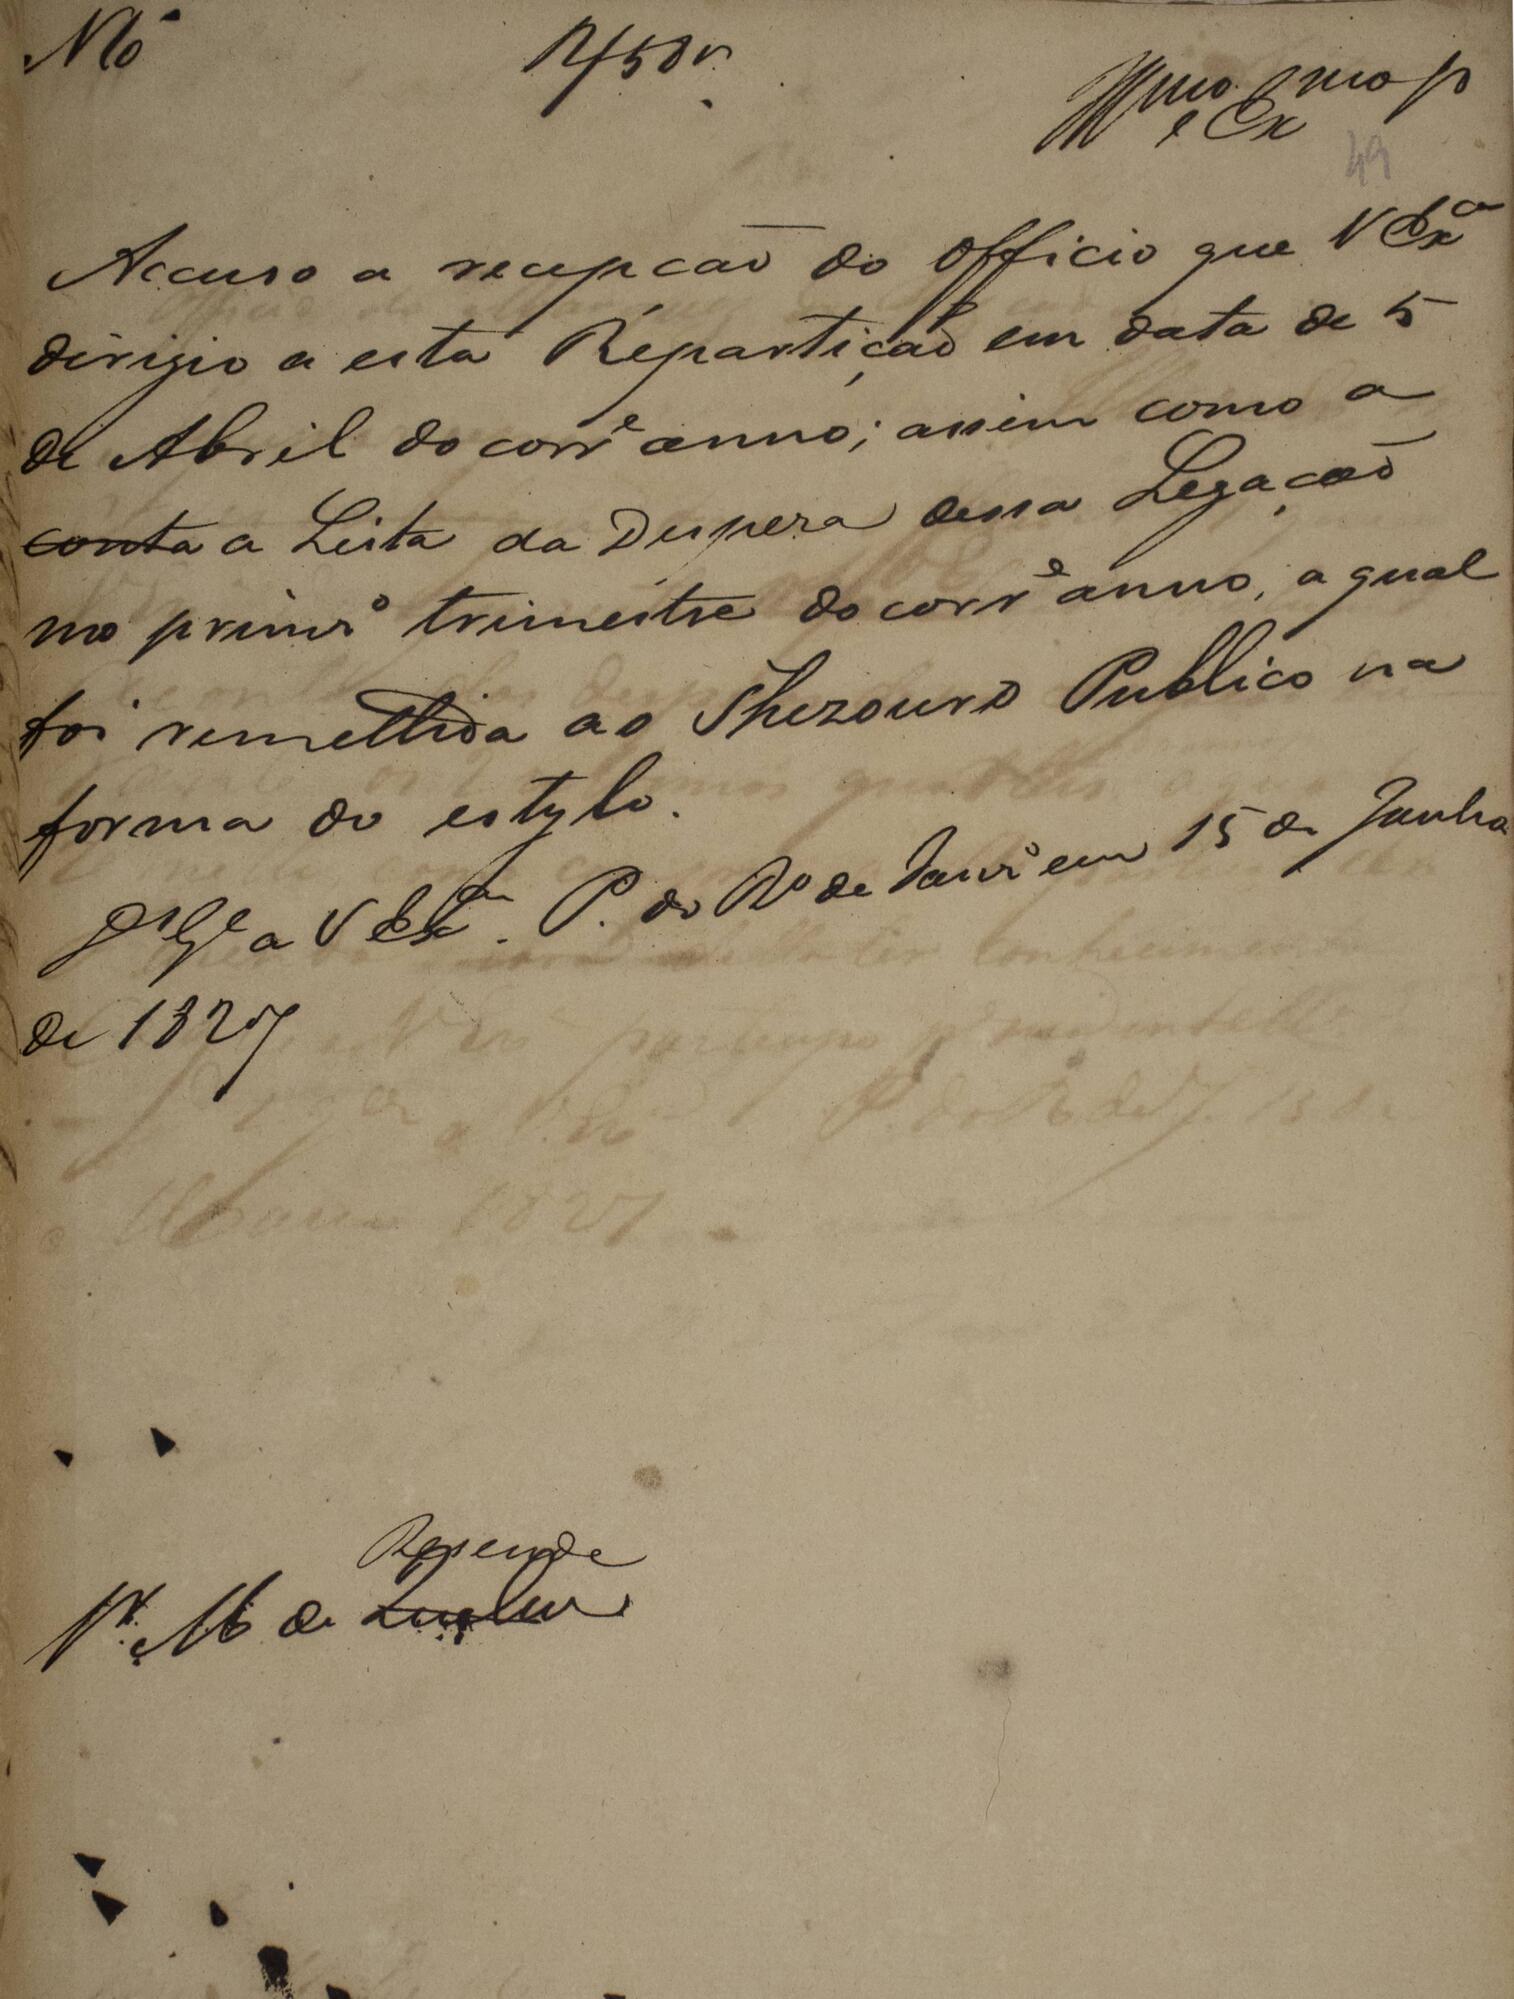 N 6
R 58 v
Illmo e Exmo Sr
49
Accuso a recepcaõ do Officio que V Exª
dirigio a esta Repartiçaõ em data de 5
de Abril do corrᵉ anno; assim como a
conta a Lista da Despeza dessa Legaçaõ
no primrº trimestre do corrᵉ anno, a qual
foi remettida ao Thezouro Publico na
forma do estylo.
Dˢ Gᵉ a V Exª. P. do Rº de Janrº em 15 de Junho
de 1827
Rezende
Sʳ M de